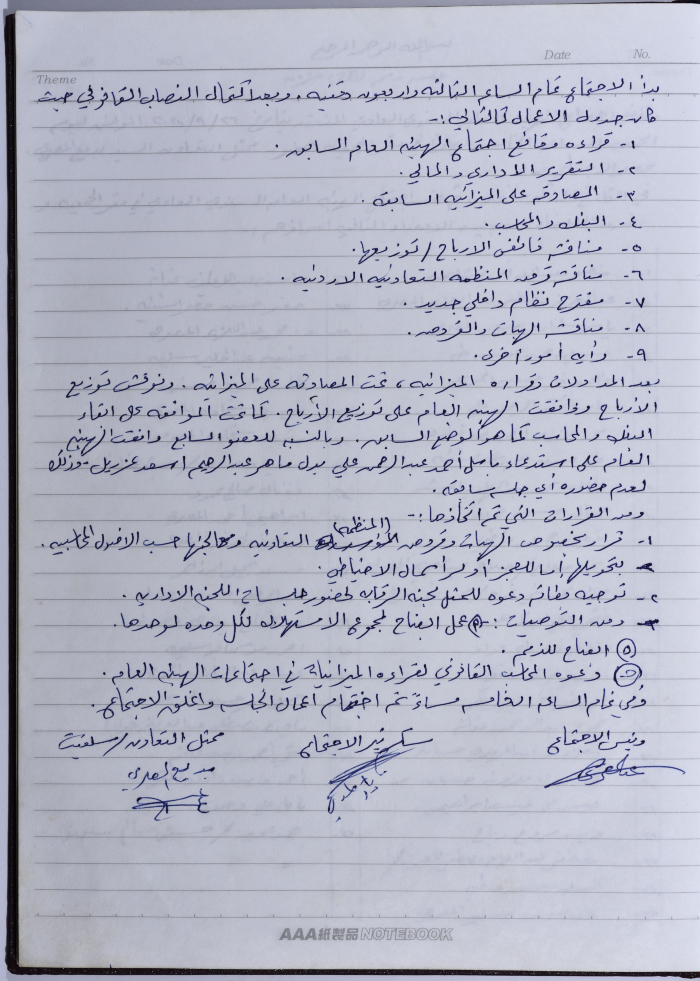 Date No.
Theme
بدأ الاجتماع تمام الساعه الثالثه واربعون دقيقه، وبعد اكتمال النصاب القانوني حيث
كان جدول الاعمال كالتالي :-
١- قراءه وقائع اجتماع الهيئه العامه السابق.
٢- التقرير الاداري والمالي.
٣- المصادقه على الميزانيه السابقة.
٤- البنك والمحاسب.
٥- مناقشه فائض الارباح / توزيعها.
٦- مناقشه قرض المنظمه التعاونيه الاردنيه.
٧- مقترح نظام داخلي جديد.
٨- مناقشه الهبات والقروض.
٩- وأيه أمور أخرى.
بعد المداولات وقراءه الميزانيه، تمت المصادقه على الميزانيه. ونوقش توزيع
الأرباح ووافقت الهيئه العامه على توزيع الأرباح. كما تمت الموافقه على ابقاء
البنك والمحاسب كما هو الوضع السابق. وبالنسبه للعضو السابع وافقت الهيئه
العامه على استدعاء باسل أحمد عبد الرحمن علي بدل ماهر عبد الرحيم اسعد عزريل - وذلك
لعدم حضوره أي جلسه سابقه.
ومن القرارات التي تم اتخاذها :-
١- قرار بخصوص الهبات وقروض (المنظمه) التعاونيه ومعالجتها حسب الاصول المحاسبيه.
بتحويلها إما للعجز أو لرأسمال الاحتياطي.
٢- توجيه دعوه للممثل لجنه الرقابه لحضور جلسات اللجنه الاداريه.
ومن التوصيات :- عمل ايضاح لمجموع الاستهلاك لكل وحده لوحدها.
ايضاح للذمم.
دعوه المحاسب القانوني لقراءه الميزانيه في اجتماعات الهيئه العامه.
وفي تمام الساعه الخامسه مساءً تم اختتام اعمال الجلسه واغلق الاجتماع.
رئيس الاجتماع سكرتير الاجتماع ممثل التعاون / سلفيت
AAA紙製品 NOTEBOOK